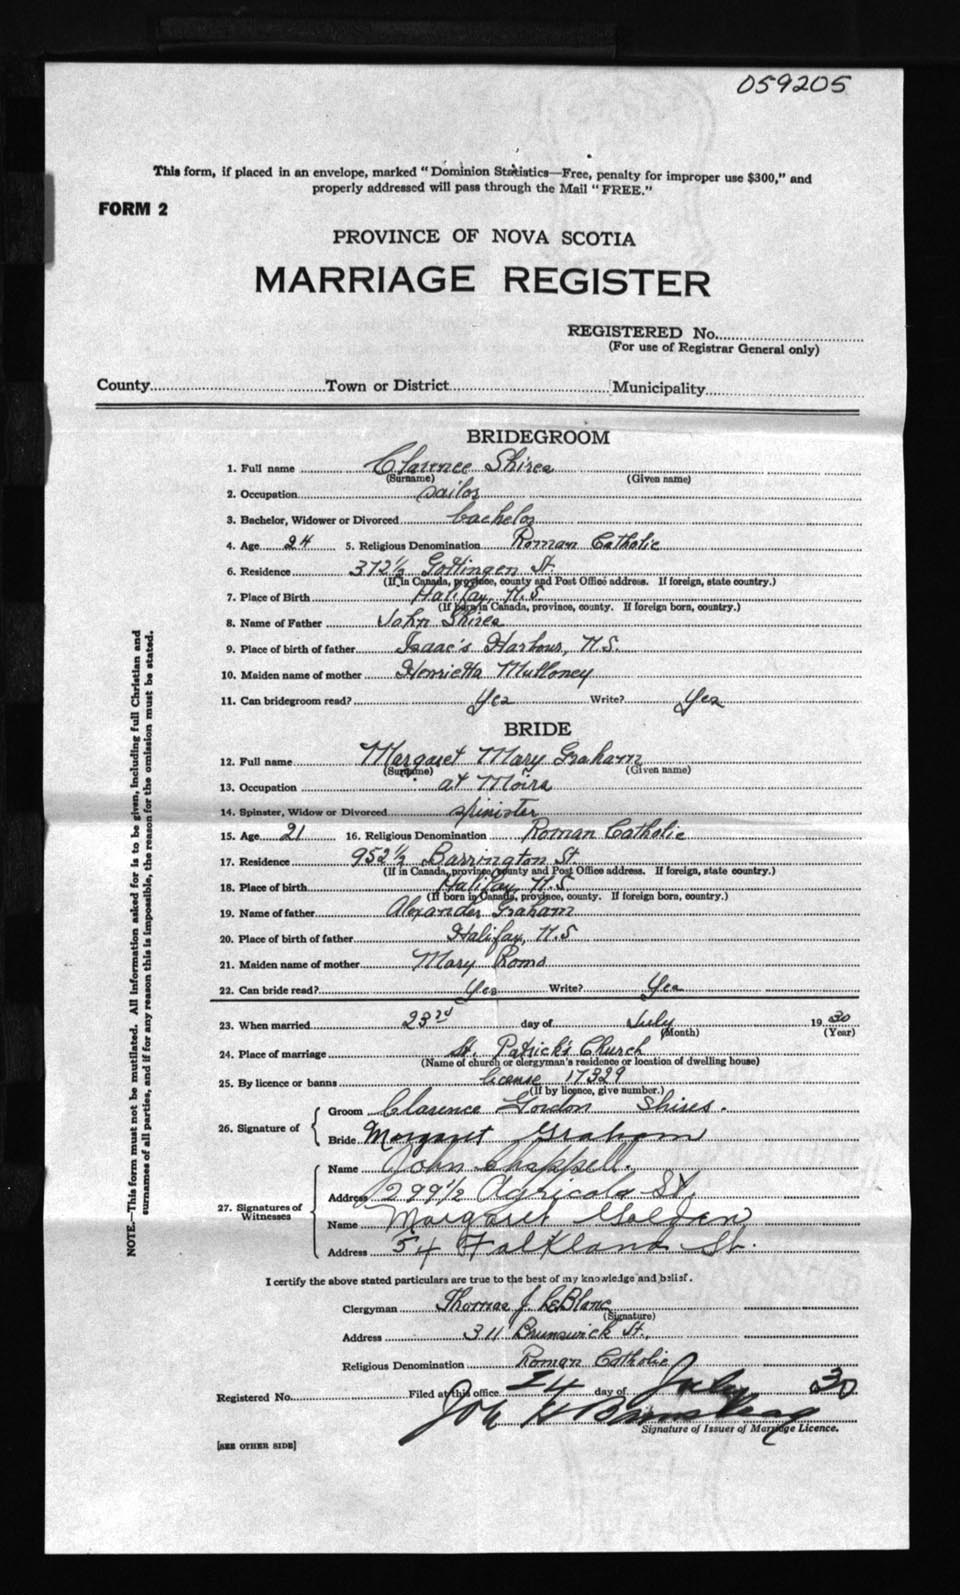 059205
This form, if placed in an envelope, marked "Dominion Statistics—Free, penalty for improper use $300," and
properly addressed will pass through the Mail "FREE."
FORM 2
PROVINCE OF NOVA SCOTIA
MARRIAGE REGISTER
REGISTERED No.
(For use of Registrar General only)
County Town or District Municipality
BRIDEGROOM
1. Full name Clarence Shires
(Surname) (Given name)
2. Occupation sailor
3. Bachelor, Widower or Divorced bachelor
4. Age 24 5. Religious Denomination Roman Catholic
6. Residence 372½ Gottingen St.
(If in Canada, province, county and Post Office address. If foreign, state country.)
7. Place of Birth Halifax, N.S
(If born in Canada, province, county. If foreign born, country.)
8. Name of Father John Shires
9. Place of birth of father Isaac's Harbour, N.S.
10. Maiden name of mother Henrietta Mulloney
11. Can bridegroom read? Yes Write? Yes
BRIDE
12. Full name Margaret Mary Graham
(Surname) (Given name)
13. Occupation at Moirs
14. Spinster, Widow or Divorced spinister
15. Age 21 16. Religious Denomination Roman Catholic
17. Residence 952½ Barrington St.
(If in Canada, province, county and Post Office address. If foreign, state country.)
18. Place of birth Halifax N.S
(If born in Canada, province, county. If foreign born, country.)
19. Name of father Alexander Graham
20. Place of birth of father Halifax, N.S
21. Maiden name of mother Mary
22. Can bride read? Yes Write? Yes
23. When married 23rd day of July 1930
(Month) (Year)
24. Place of marriage St. Patrick's Church
(Name of church or clergyman's residence or location of dwelling house)
25. By licence or banns license 17329
(If by licence, give number.)
26. Signature of
Groom Clarence Gordon Shires.
Bride Margaret Graham
27. Signatures of Witnesses
Name John Chappell.
Address 299½ Agricola St.
Name Margaret Golden
Address 54 Falkland St.
I certify the above stated particulars are true to the best of my knowledge and belief.
Clergyman Thomas J. LeBlanc
(Signature)
Address 311 Brunswick St.,
Religious Denomination Roman Catholic
Registered No. Filed at this office 24 day of July 30
Signature of Issuer of Marriage Licence.
[SEE OTHER SIDE]
NOTE.—This form must not be mutilated. All information asked for is to be given, including full Christian and
surnames of all parties, and if for any reason this is impossible, the reason for the omission must be stated.